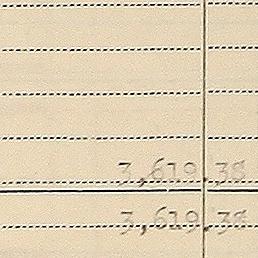 3,619.38
3,619.38